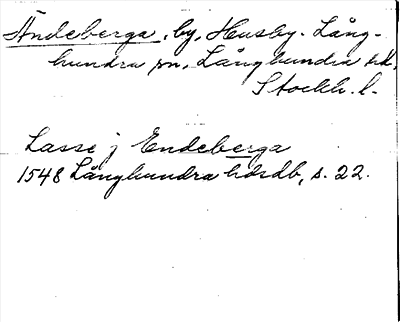 Ändeberga, by, Husby-Lång-
hundra sn, Långhundra hd,
Stockh. l.
Lasse j Endeberga
1548 Långhundra hdsdb, s. 22.